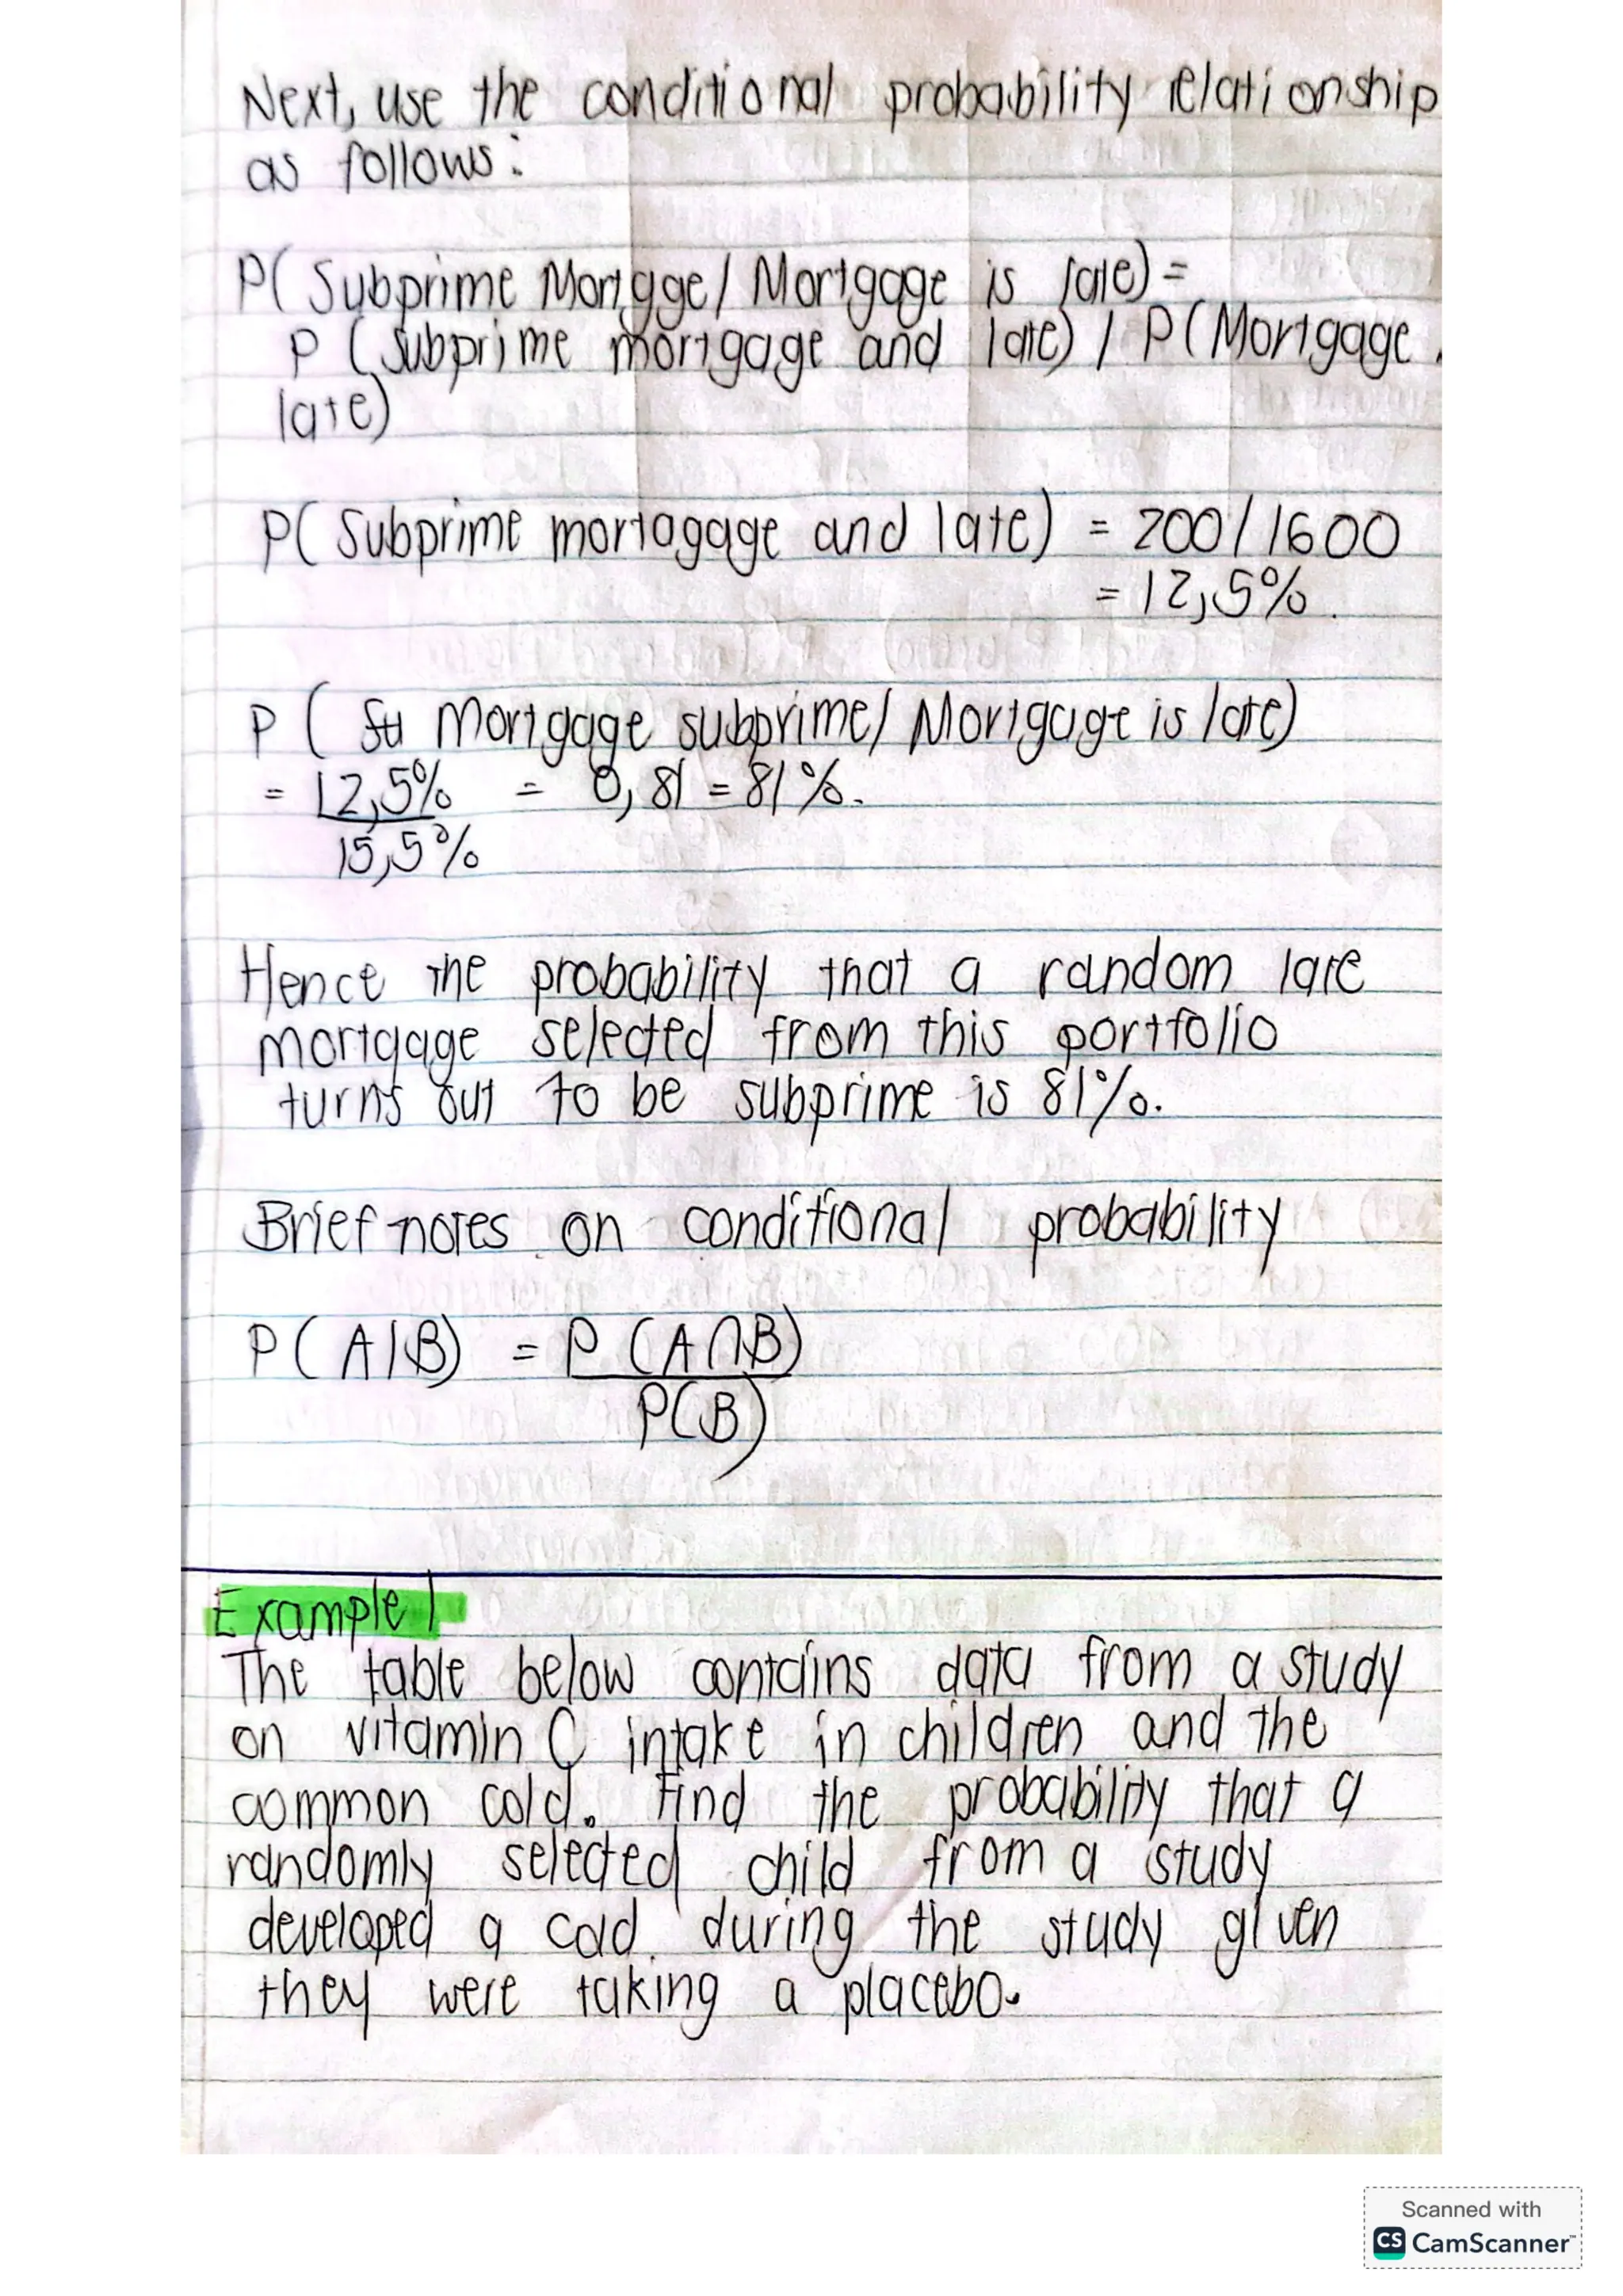 Next, use the conditional probability relationship
as follows:
P( Subprime Mortgge/ Mortgage is late) =
P (subprime mortgage and late) / P(Mortgage
late)
P( Subprime mortagage and late) = 200/1600
= 12,5%
P ( Mortgage subprime/ Mortgage is late)
= 12,5% = 0,81 = 81%.
15,5%
Hence the probability that a random late
mortgage selected from this portfolio
turns out to be subprime is 81%.
Brief notes on conditional probability
P( A|B) = P (A∩B)
P(B)
Example 1
The table below contains data from a study
on vitamin C intake in children and the
common cold. Find the probability that a
randomly selected child from a study
developed a cold during the study given
they were taking a placebo.
Scanned with
CS CamScanner™